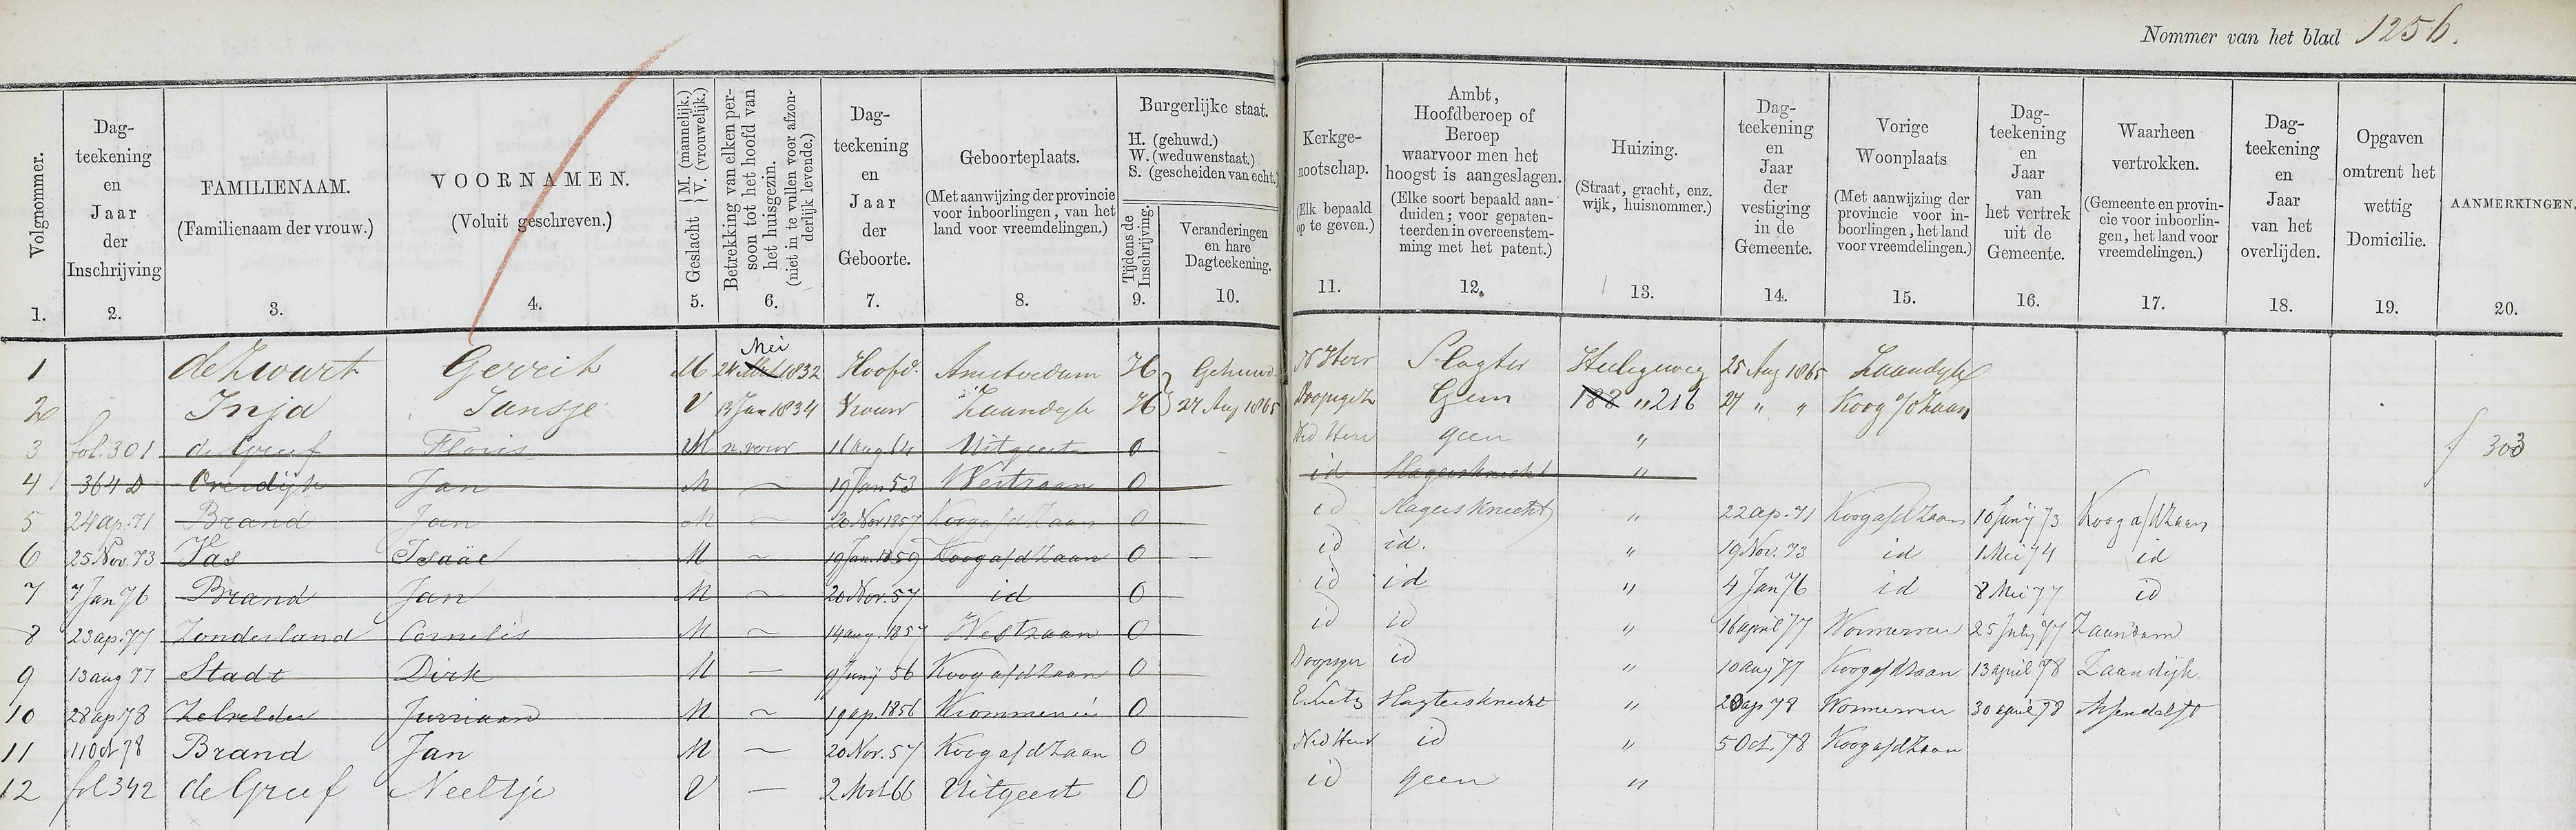 Nommer van het blad 1256.
Volgnommer. 1.
Dag-
teekening
en
Jaar
der
Inschrijving
2.
FAMILIENAAM.
(Familienaam der vrouw.)
3.
VOORNAMEN.
(Voluit geschreven.)
4.
Geslacht { M. (mannelijk.) V. (vrouwelijk.)
5.
Betrekking van elken per-
soon tot het hoofd van
het huisgezin.
(niet in te vullen voor afzon-
derlijk levende.)
6.
Dag-
teekening
en
Jaar
der
Geboorte.
7.
Geboorteplaats.
(Met aanwijzing der provincie
voor inboorlingen, van het
land voor vreemdelingen.)
8.
Burgerlijke staat.
H. (gehuwd.)
W. (weduwenstaat.)
S. (gescheiden van echt.)
Tijdens de
Inschrijving.
9.
Veranderingen
en hare
Dagteekening.
10.
Kerkge-
nootschap.
(Elk bepaald
op te geven.)
11.
Ambt,
Hoofdberoep of
Beroep
waarvoor men het
hoogst is aangeslagen.
(Elke soort bepaald aan-
duiden; voor gepaten-
teerden in overeenstem-
ming met het patent.)
12.
Huizing.
(Straat, gracht, enz.
wijk, huisnommer.)
13.
Dag-
teekening
en
Jaar
der
vestiging
in de
Gemeente.
14.
Vorige
Woonplaats
(Met aanwijzing der
provincie voor in-
boorlingen, het land
voor vreemdelingen.)
15.
Dag-
teekening
en
Jaar
van
het vertrek
uit de
Gemeente.
16.
Waarheen
vertrokken.
(Gemeente en provin-
cie voor inboorlin-
gen, het land voor
vreemdelingen.)
17.
Dag-
teekening
en
Jaar
van het
overlijden.
18.
Opgaven
omtrent het
wettig
Domicilie.
19.
AANMERKINGEN.
20.
1 de Zwart Gerrit M 24 Mei 1832 Hoofd. Amsterdam H } Gehuwd N Herv Slagter Heiligeweg 25 Aug 1865 Zaandyk
2 Inja Jansje V 13 Jan 1834 Vrouw Zaandyk H } 27 Aug 1865 Doopsgez Geen 188 " 216 27 " " Koog a/d Zaan
3 fol. 301 de Greef Floris M n. vrouw 16 aug 64 Uitgeest O Ned Herv geen " f 303
4 364 D Overdijk Jan M — 19 Jan 53 Westzaan O id Slagersknecht "
5 24 ap. 71 Brand Jan M — 20 Nov 1857 Koog a/d Zaan O id Slagersknecht " 22 ap. 71 Koog a/d Zaan 10 Junij 73 Koog a/d Zaan
6 25 Nov. 73 Vas Isaäc M ~ 19 Jan. 1859 Koog a/d Zaan O id id. " 19 Nov. 73 id 1 Mei 74 id
7 7 Jan 76 Brand Jan M ~ 20 Nov. 57 id O id id " 4 Jan 76 id 8 Mei 77 id
8 23 ap. 77 Zonderland Cornelis M ~ 14 aug. 1857 Westzaan O id id " 16 april 77 Wormerveer 25 July 77 Zaandam
9 13 aug 77 Stadt Dirk M — 9 Junij 56 Koog a/d Zaan O Doopsgez id " 10 aug 77 Koog a/d Zaan 13 april 78 Zaandijk
10 28 ap 78 Jurriaan M ~ 19 ap. 1856 Krommenie O Slagtersknecht " 20 ap 78 Wormerveer 30 april 78 Assendelft
11 11 Oct 78 Brand Jan M ~ 20 Nov. 57 Koog a/d Zaan O Ned Herv id " 5 Oct. 78 Koog a/d Zaan
12 fol 342 de Greef Neeltje V — 2 66 Uitgeest O id geen "